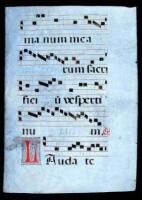 manum mea
rum sacri
fici ū vesperti
nu m
Lauda te